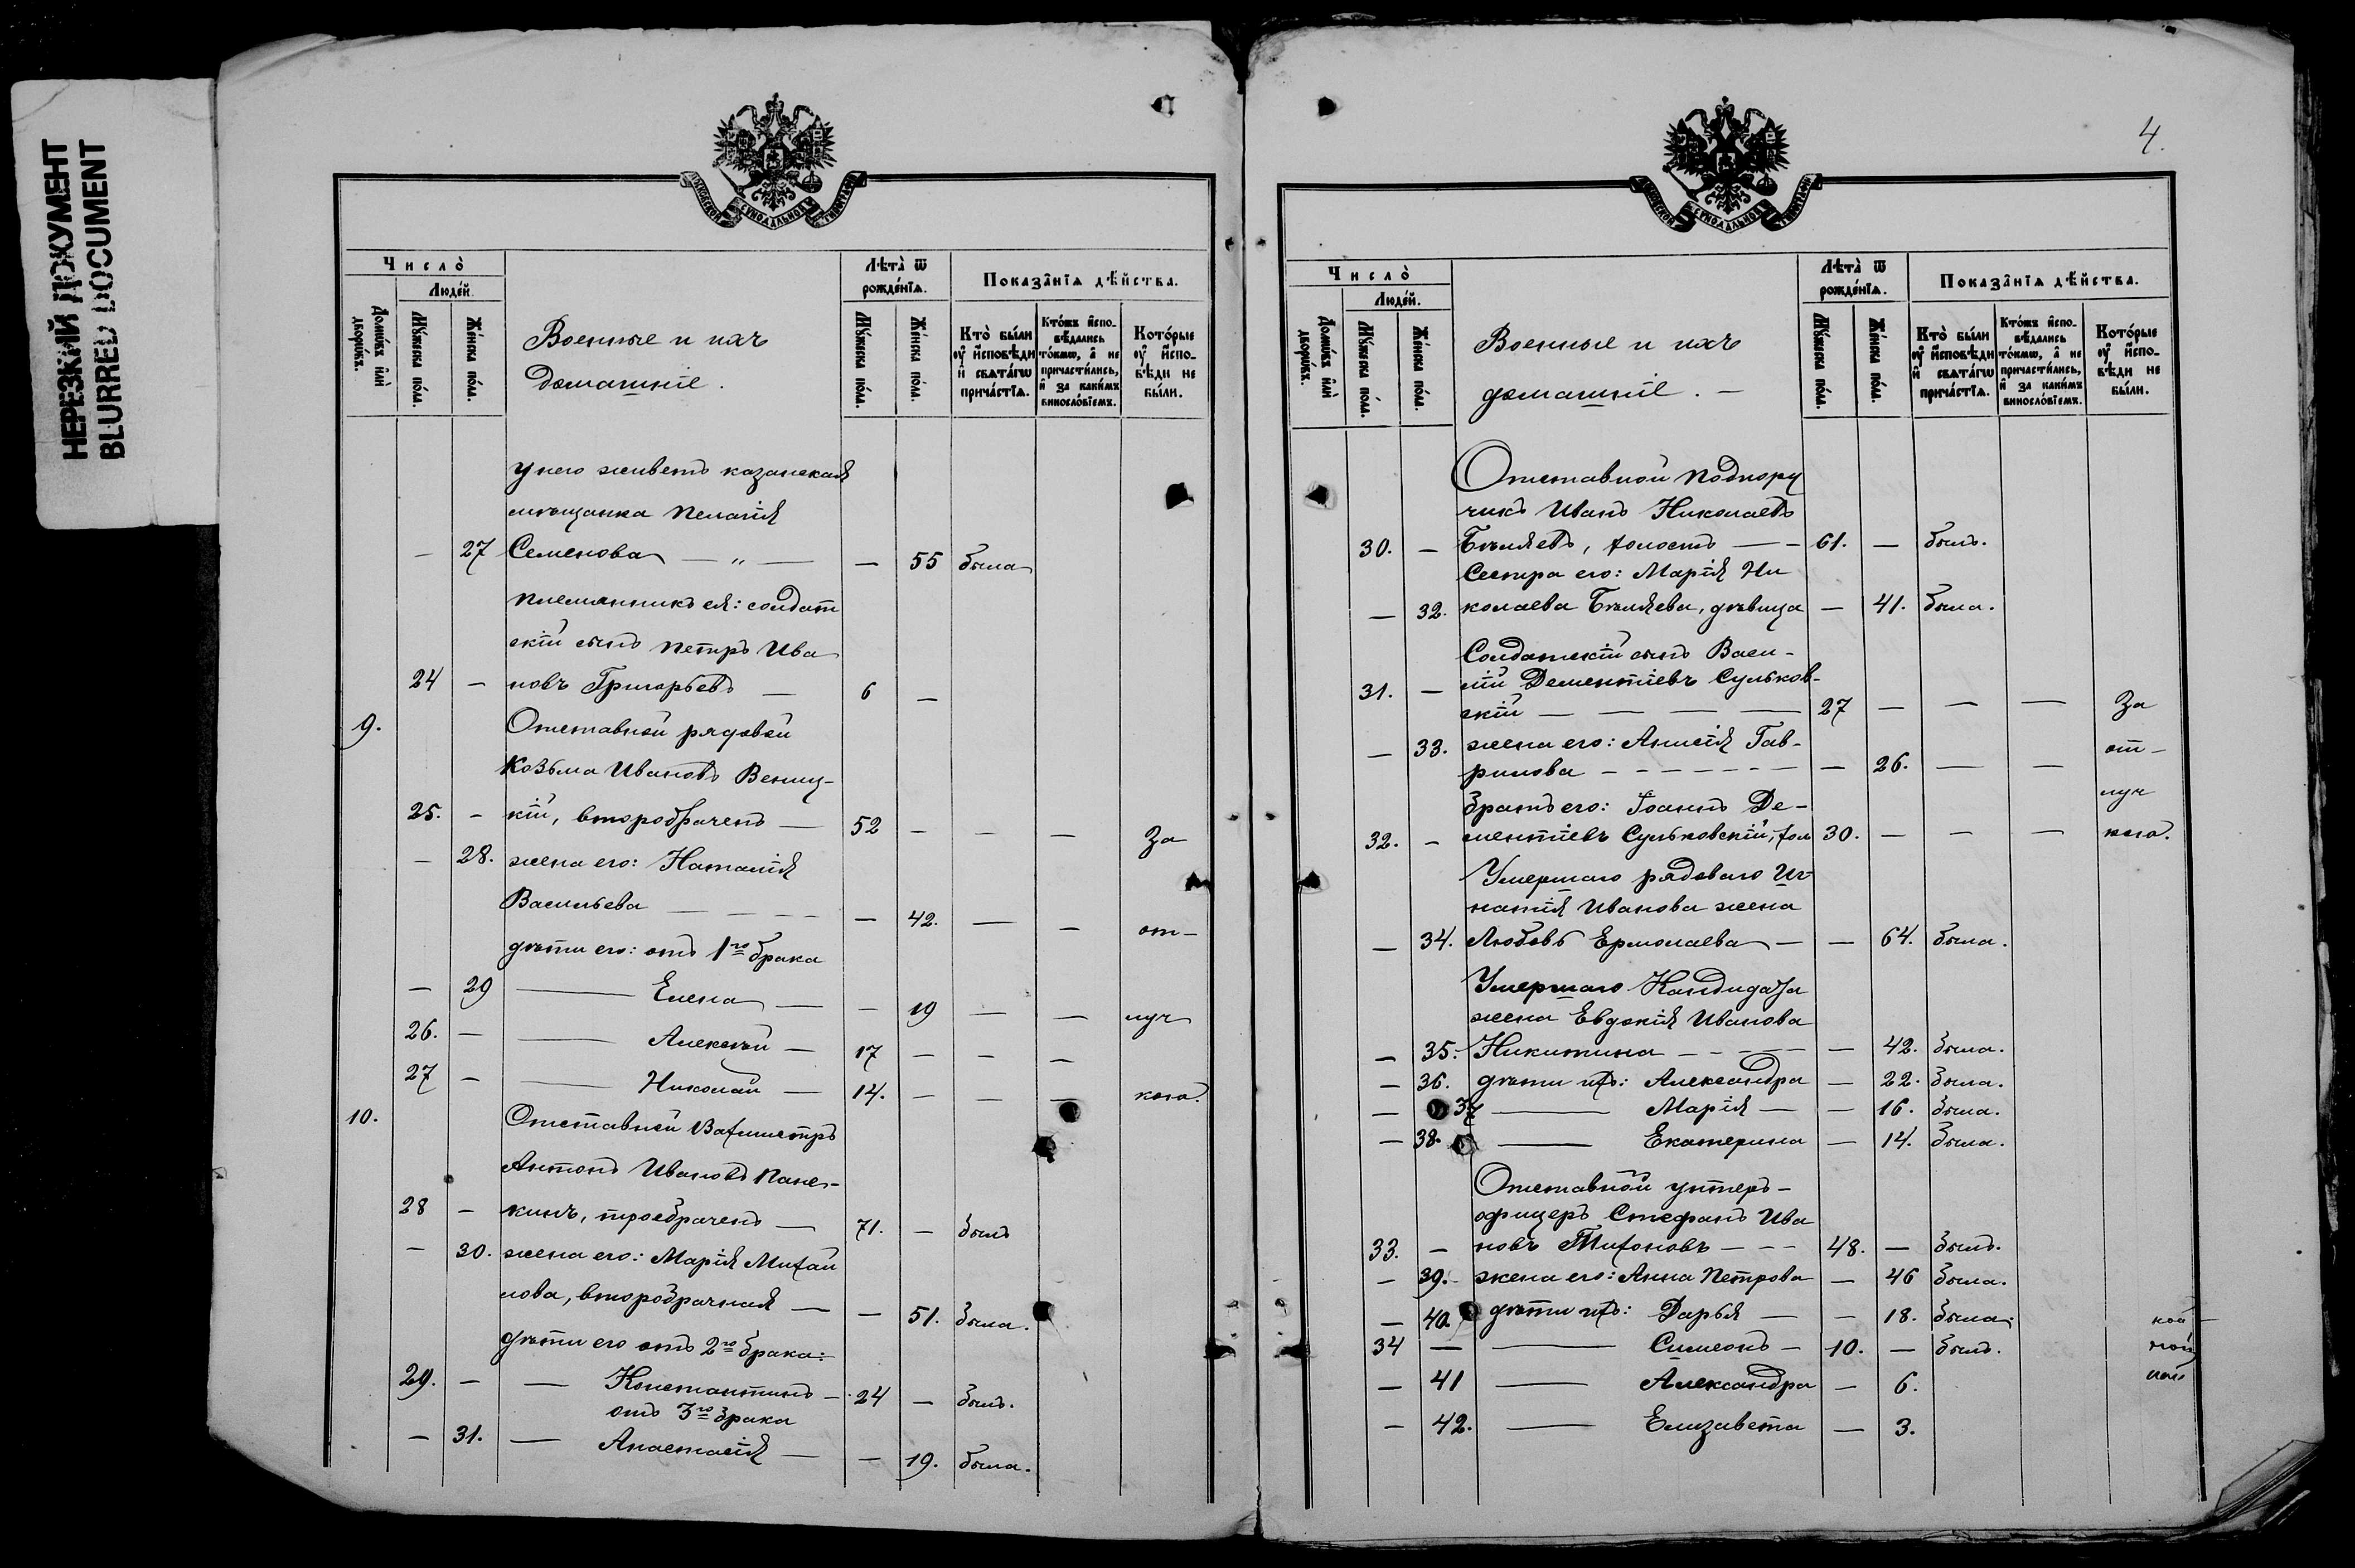 НЕРЕЗКИЙ ДОКУМЕНТ
BLURRED DOCUMENT
МОСКОВСКОЙ СѴНОДАЛЬНОЙ ТИПОГРАФІИ
Число̀
Людéй.
Домѡ́въ и҆лѝ дворѡ́въ.
Мꙋ́жеска по́ла.
Же́нска по́ла.
Военные и ихъ
домашніе.
Лѣта̀ ѿ рожде́нїѧ.
Мꙋ́жеска по́ла.
Же́нска по́ла.
Показа̑нїѧ дѣ́йства.
Кто̀ бы́ли ᲂу҆ и҆сповѣди и҆ свѧта́гѡ прича́стїѧ.
Кто́жъ и҆спо-вѣдались то́кмѡ, а҆ не причасти́лись, и҆ за каки́мъ винослóвїемъ.
Кото́рые ᲂу҆ и҆спо-вѣди не бы́ли.
у него живетъ казанская
мѣщанка Пелагія
— 27 Семенова — „ — — 55 была
племянникъ ея: солдат
скій сынъ Петръ Ива
24 — новъ Григорьевъ — 6 —
9. Отставной рядовой
Козьма Ивановъ Вениц-
25. - кій, второбраченъ — 52 — — — За
— 28. жена его: Наталія
Васильева — — — — — 42. — — от-
дѣти его: отъ 1го брака
— 29 — Елена — — 19 — — луч
26. — — Алексѣй — 17 — — —
27 — — Николай — 14. — — — кою.
10. Отставной Вахмистръ
Антонъ Ивановъ Пане-
28 — кинъ, троебраченъ — 71. — былъ
— 30. жена его: Марія Михаи
лова, второбрачная — — 51. была.
дѣти его отъ 2го брака:
29. — — Константинъ — 24 — былъ.
отъ 3го брака
— 31. — Анастасія — — 19. была.
4.
МОСКОВСКОЙ СѴНОДАЛЬНОЙ ТИПОГРАФІИ
Число̀
Людéй.
Домѡ́въ и҆лѝ дворѡ́въ.
Мꙋ́жеска по́ла.
Же́нска по́ла.
Военные и ихъ
домашніе. —
Лѣта̀ ѿ рожде́нїѧ.
Мꙋ́жеска по́ла.
Же́нска по́ла.
Показа̑нїѧ дѣ́йства.
Кто̀ бы́ли ᲂу҆ и҆сповѣди и҆ свѧта́гѡ прича́стїѧ.
Кто́жъ и҆спо-вѣдались то́кмѡ, а҆ не причасти́лись, и҆ за каки́мъ винослóвїемъ.
Кото́рые ᲂу҆ и҆спо-вѣди не бы́ли.
Отставной Подпору
чикъ Иванъ Николаевъ
30. — Бѣляевъ, холостъ — — 61. — былъ.
Сестра его: Марія Ни
— 32. колаева Бѣляева, дѣвица — 41. была.
Солдатскій сынъ Васи-
31. — лій Дементіевъ Сульков-
скій — — — — 27 — — — За
— 33. жена его: Анисія Гав- от-
рилова — — — — — 26. — —
братъ его: Іоаннъ Де- луч
32. — ментіевъ Сульковскій, хол 30. — — — кою.
Умершаго рядоваго Иг-
натія Иванова жена
— 34. Любовь Ермолаева — — 64. была.
Умершаго Кандидата
жена Евдокія Иванова
— 35. Никитина — — — — 42. была.
— 36. дѣти ихъ: Александра — 22. была.
— 37 — Марія — — 16. была.
— 38. — Екатерина — 14. была.
Отставной унтеръ-
офицеръ Стефанъ Ива
33. — новъ Тихоновъ — — — 48. — былъ.
— 39. жена его: Анна Петрова — 46 была.
— 40. дѣти ихъ: Дарья — — 18. была.
34 — — Симеонъ — 10. — былъ.
— 41 — Александра — 6.
— 42. — Елизавета — 3.